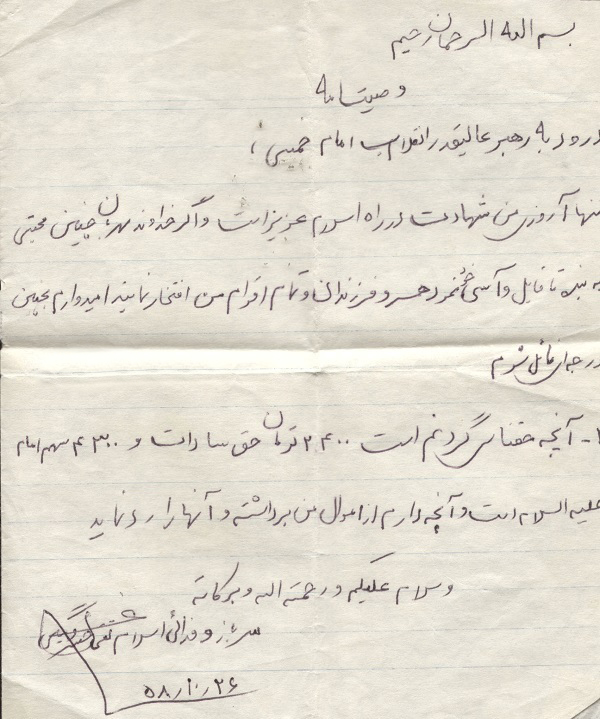 بسم الله الرحمان رحیم
وصیتنامه
درود به رهبر عالیقدر انقلاب امام خمینی ،
تنها آرزوی من شهادت در راه اسلام عزیز است و اگر خداوند مهربان چنین محبتی
به بنده نا قابل و آسی خود نمود همسر و فرزندان و تمام اقوام من افتخار نمایند امیدوارم بچنین
درجه‌ای نائل شوم
۱- آنچه حقناس گردنم است ۲۴۰۰ تومان حق سادات و ۴۳۰۰ سهم امام
علیه السلام است و آنچه دارم از اموال من برداشته و آنها را رد نماید
وسلام علیکم و رحمته اله و برکاته
سرباز و فدائی اسلام
۵۸/۱۰/۲۶